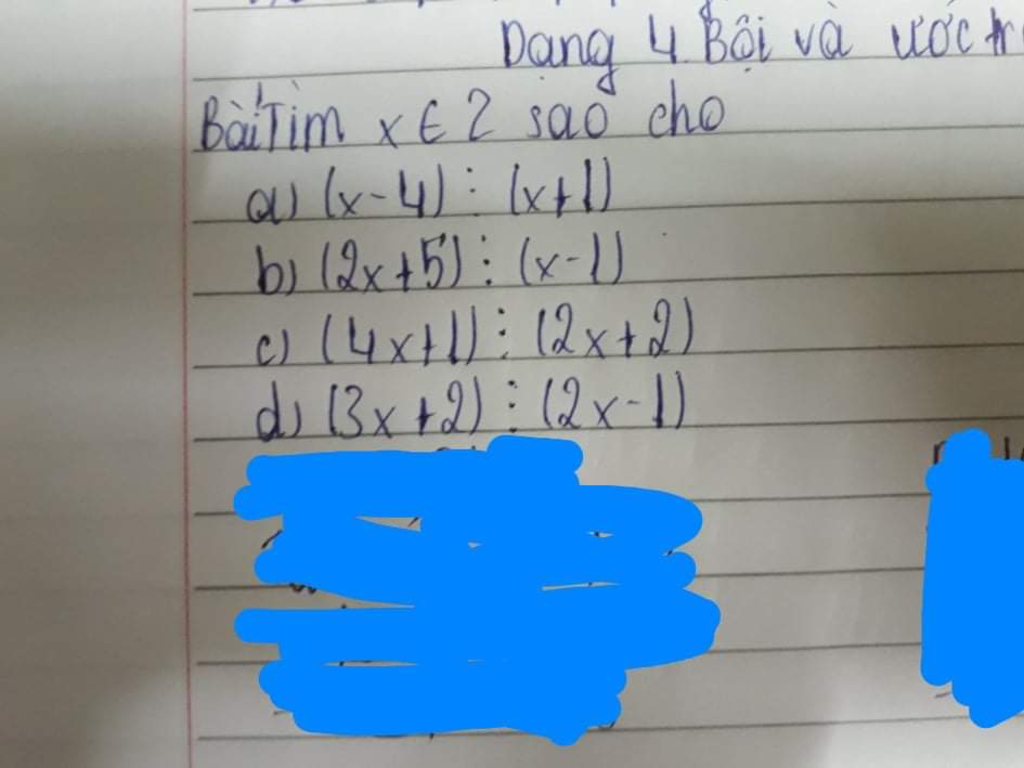 Dạng 4. Bội và ước
Bài 1 Tìm x ∈ Z sao cho
a) (x-4) ⋮ (x+1)
b) (2x+5) ⋮ (x-1)
c) (4x+1) ⋮ (2x+2)
d) (3x+2) ⋮ (2x-1)